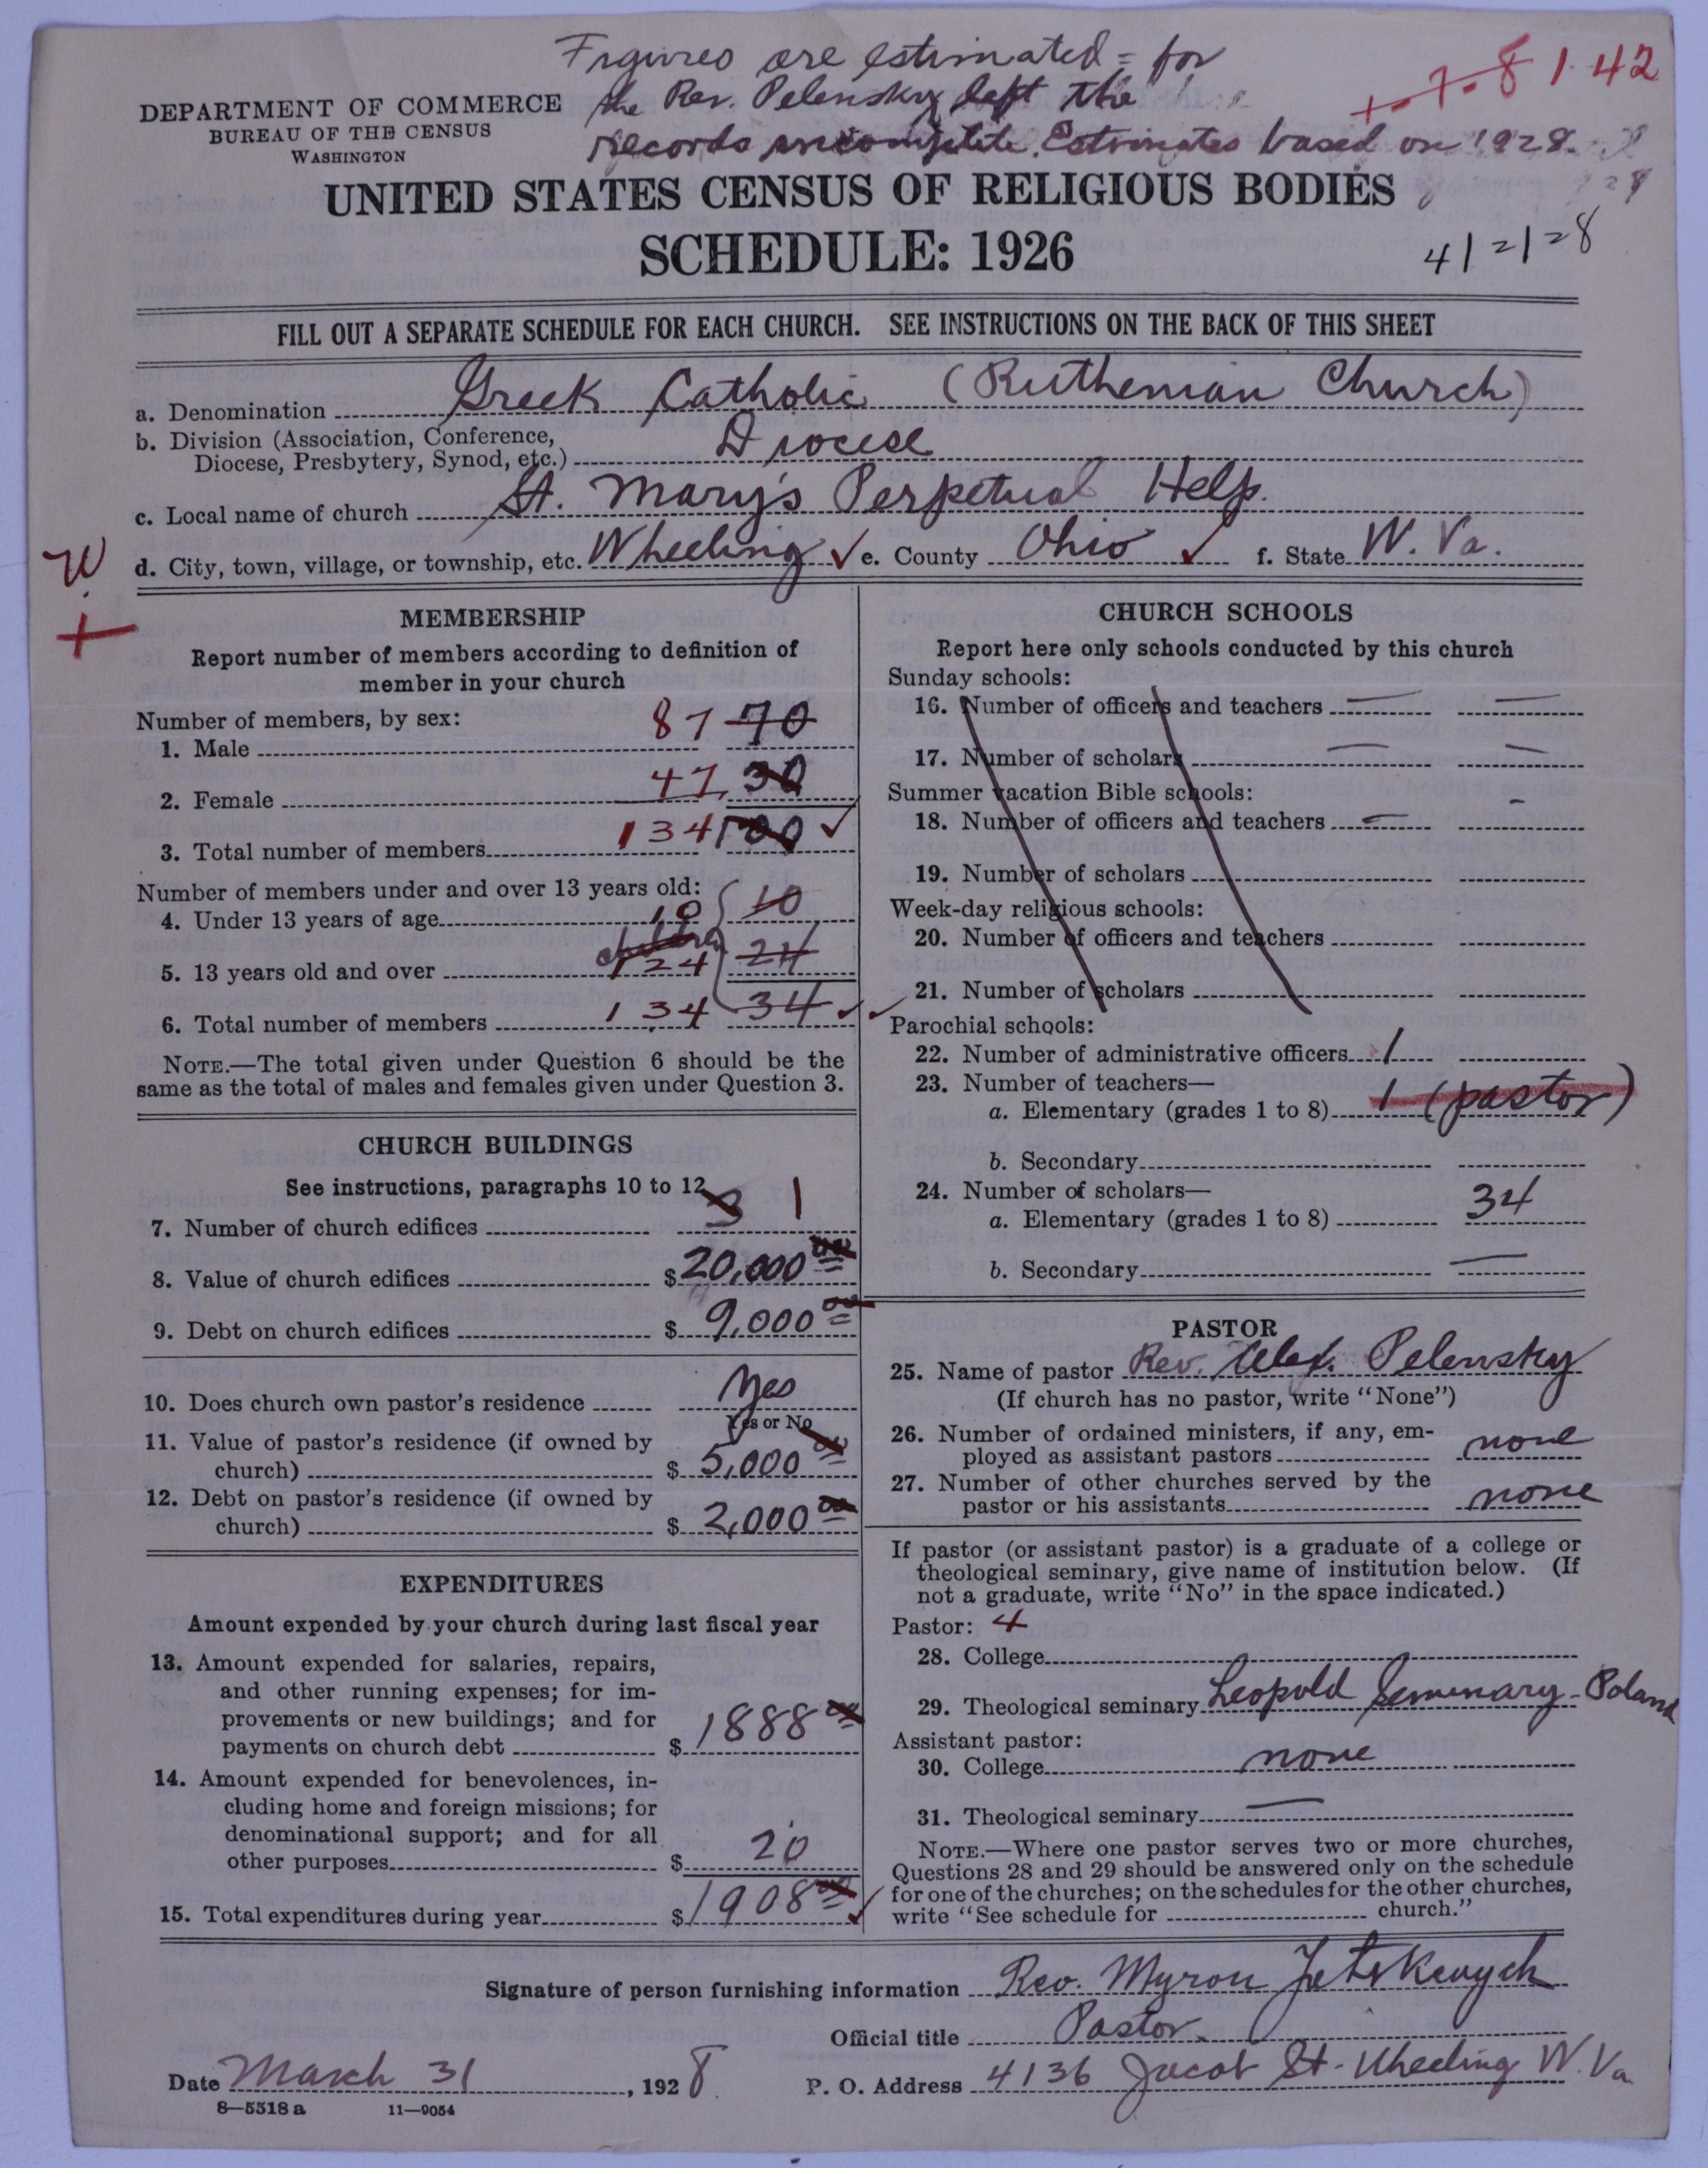 Figures are estimated = for
the Rev. Pelensky left the
records incomplete. Estimates based on 1928.
+-7-8 1-42
DEPARTMENT OF COMMERCE
BUREAU OF THE CENSUS
WASHINGTON
UNITED STATES CENSUS OF RELIGIOUS BODIES
SCHEDULE: 1926
4/2/28
FILL OUT A SEPARATE SCHEDULE FOR EACH CHURCH. SEE INSTRUCTIONS ON THE BACK OF THIS SHEET
a. Denomination Greek Catholic (Ruthenian Church)
b. Division (Association, Conference,
Diocese, Presbytery, Synod, etc.) Diocese
c. Local name of church St. Mary's Perpetual Help.
W
d. City, town, village, or township, etc. Wheeling ✓ e. County Ohio ✓ f. State W. Va.
+
MEMBERSHIP
Report number of members according to definition of
member in your church
Number of members, by sex:
1. Male 87 70
2. Female 47 30
3. Total number of members 134 100 ✓
Number of members under and over 13 years old:
4. Under 13 years of age 10 10
children
5. 13 years old and over 124 24
6. Total number of members 134 34 ✓
NOTE.—The total given under Question 6 should be the
same as the total of males and females given under Question 3.
CHURCH BUILDINGS
See instructions, paragraphs 10 to 12
7. Number of church edifices 3 1
8. Value of church edifices $20,000 00
9. Debt on church edifices $ 9,000 00
10. Does church own pastor's residence Yes
Yes or No
11. Value of pastor's residence (if owned by
church) $ 5,000 00
12. Debt on pastor's residence (if owned by
church) $ 2,000 00
EXPENDITURES
Amount expended by your church during last fiscal year
13. Amount expended for salaries, repairs,
and other running expenses; for im-
provements or new buildings; and for
payments on church debt $ 1888 00
14. Amount expended for benevolences, in-
cluding home and foreign missions; for
denominational support; and for all
other purposes $ 20
15. Total expenditures during year $ 1908 00 ✓
CHURCH SCHOOLS
Report here only schools conducted by this church
Sunday schools:
16. Number of officers and teachers — —
17. Number of scholars — —
Summer vacation Bible schools:
18. Number of officers and teachers — -
19. Number of scholars
Week-day religious schools:
20. Number of officers and teachers
21. Number of scholars
Parochial schools:
22. Number of administrative officers 1
23. Number of teachers—
a. Elementary (grades 1 to 8) 1 (pastor)
b. Secondary
24. Number of scholars—
a. Elementary (grades 1 to 8) 34
b. Secondary —
PASTOR
25. Name of pastor Rev. Alex. Pelensky
(If church has no pastor, write "None")
26. Number of ordained ministers, if any, em-
ployed as assistant pastors none
27. Number of other churches served by the
pastor or his assistants none
If pastor (or assistant pastor) is a graduate of a college or
theological seminary, give name of institution below. (If
not a graduate, write "No" in the space indicated.)
Pastor: 4
28. College
29. Theological seminary Leopold Seminary - Poland
Assistant pastor:
30. College none
31. Theological seminary —
NOTE.—Where one pastor serves two or more churches,
Questions 28 and 29 should be answered only on the schedule
for one of the churches; on the schedules for the other churches,
write "See schedule for church."
Signature of person furnishing information Rev. Myron
Official title Pastor.
Date March 31, 1928. P. O. Address 4136 Jacob St. Wheeling W. Va
8—5518 a 11—9054